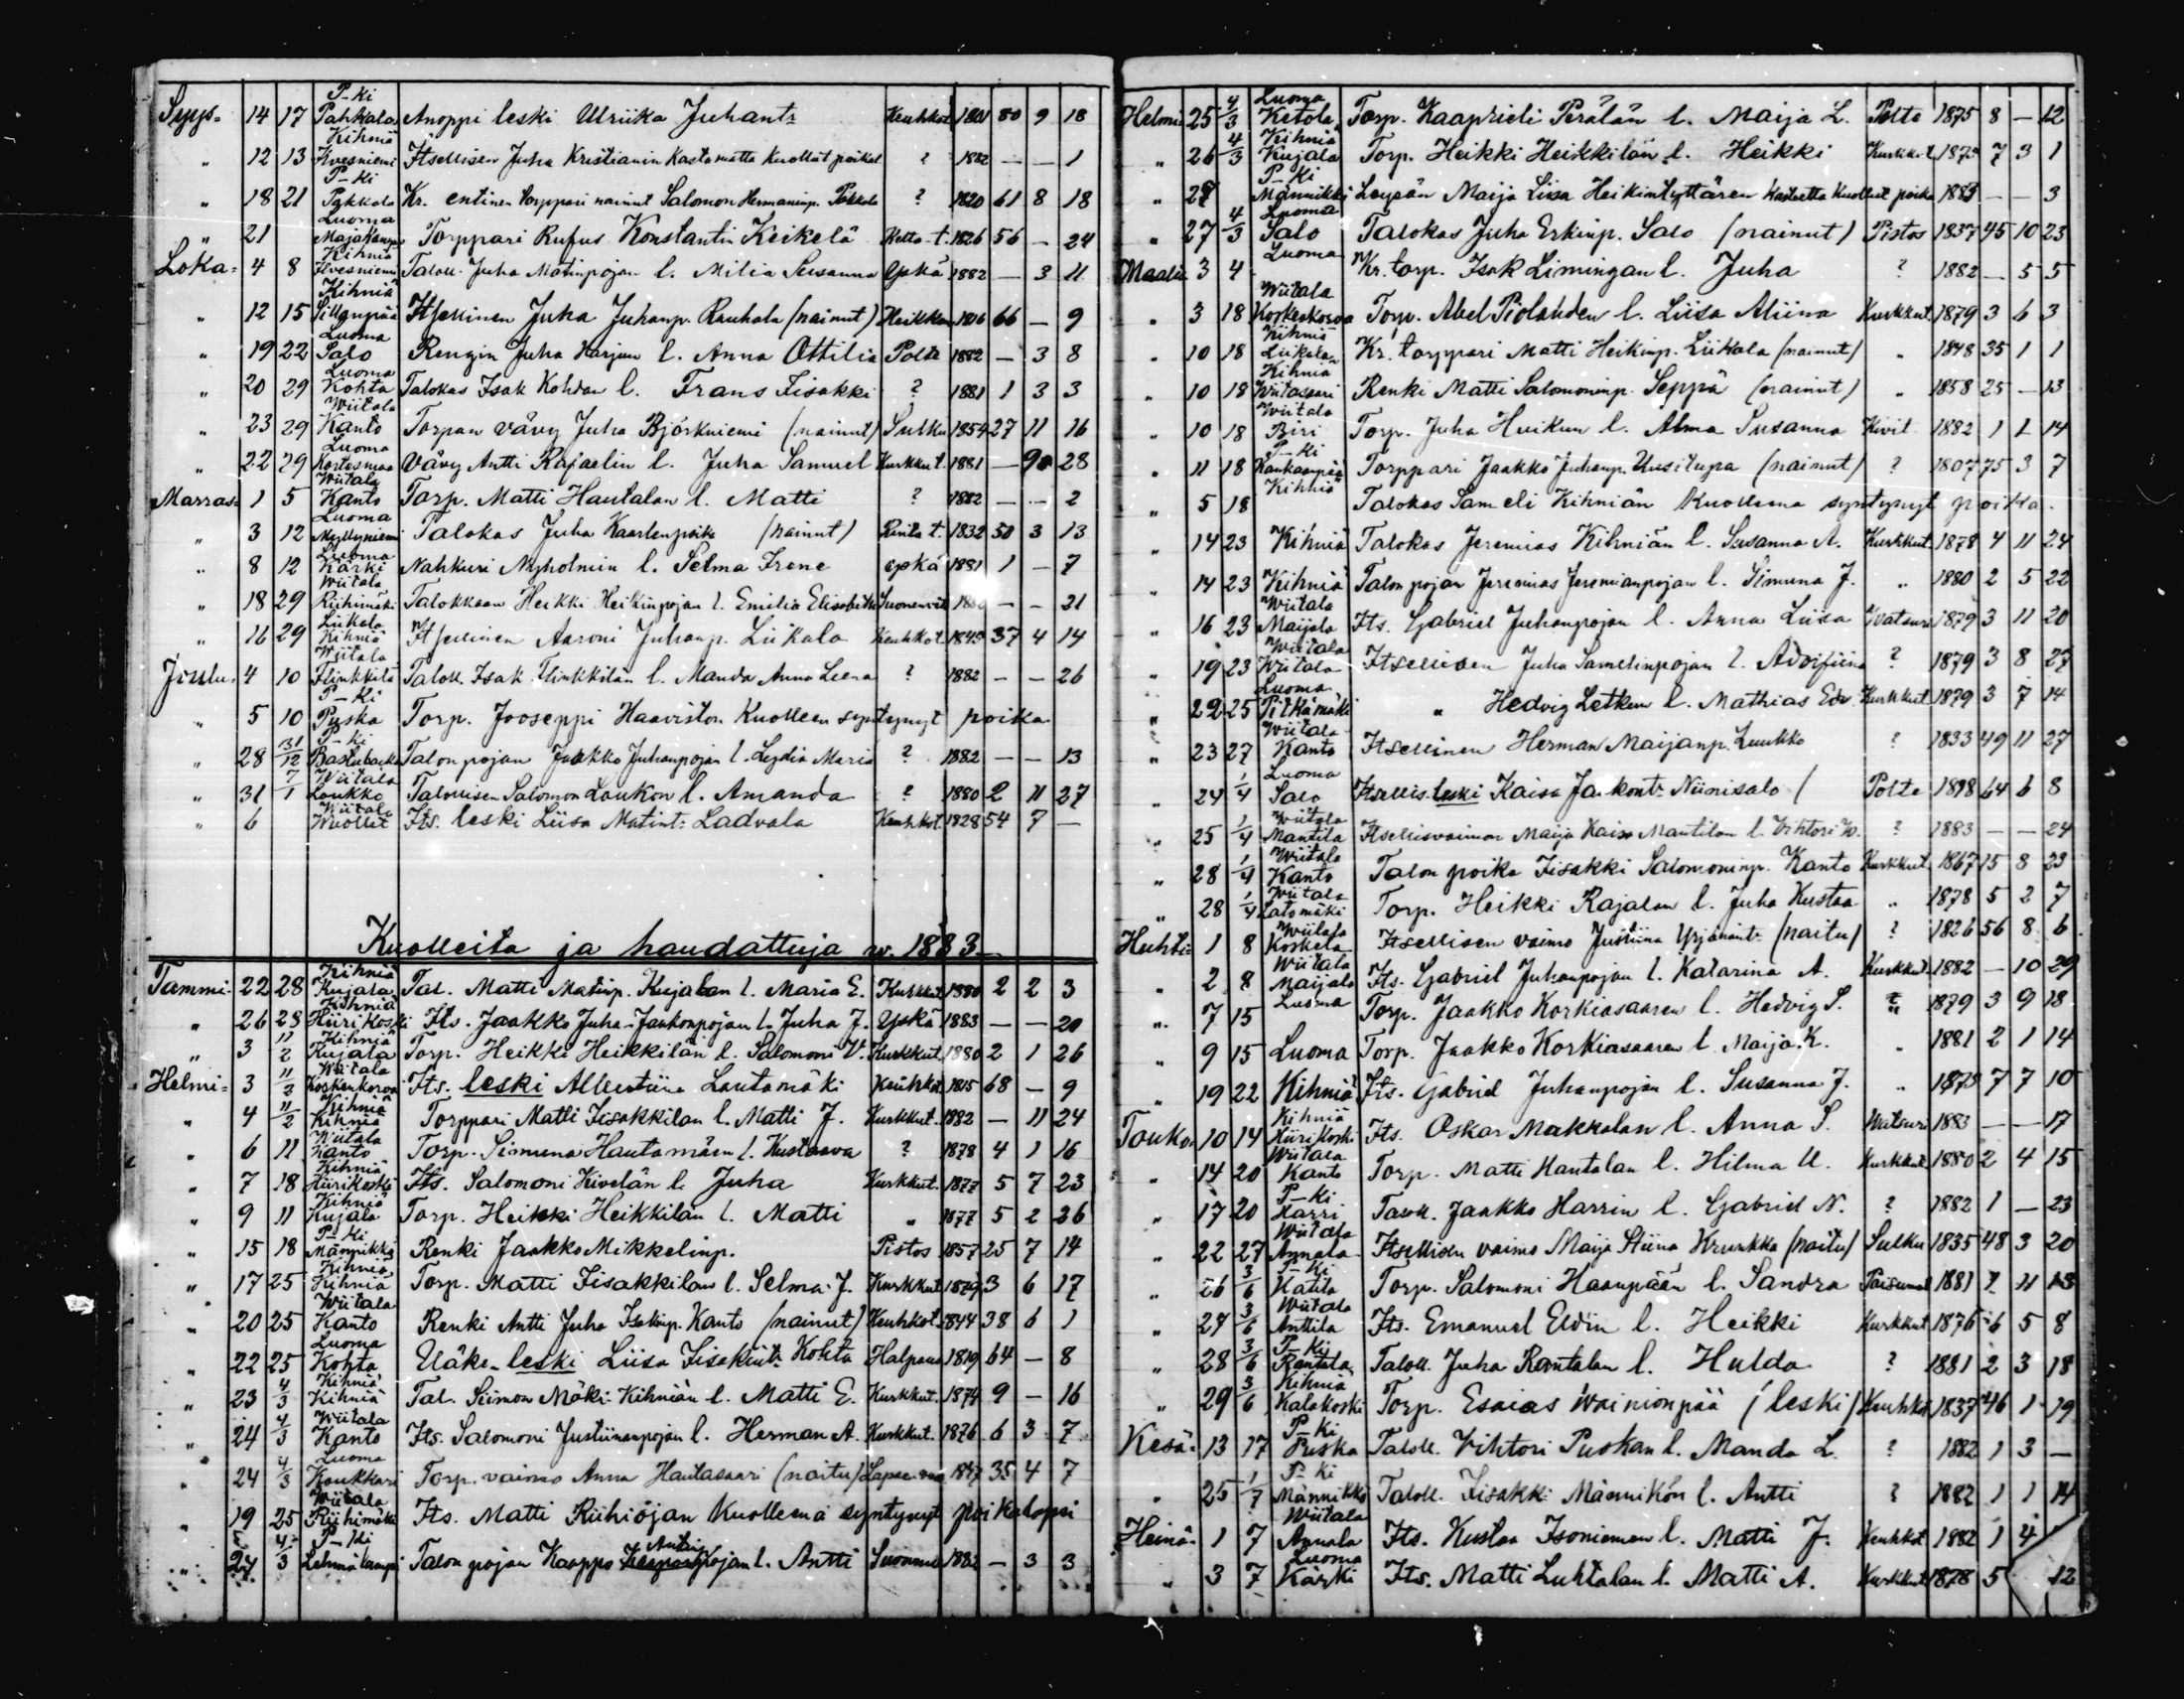 Syys= 14 17 P-ki Pahkala Anoppi leski Ulriika Juhantr Keuhkot 1801 80 9 18
" 12 13 Kihniä Ilvesniemi Itsellisen Juha Kristianin Kastamatta Kuollut poikal ? 1882 — — 1
" 18 21 P-ki Pahkala Kr. entinen torppari nainut Salomon Hermaninp. Pahkala ? 1820 61 8 18
" 21 Luoma Majakangas Torppari Rufus Konstantin Keikelä Kolto-t. 1826 56 — 24
Loka= 4 8 Kihniä Ilvesniemi Taloll. Juha Matinpojan l. Milia Susanna Yskä 1882 — 3 11
" 12 15 Kihniä Sillanpää Itsellinen Juha Juhanp. Rauhala (nainut) Heikkou 1816 66 — 9
" 19 22 Luoma Salo Rengin Juha Harjun l. Anna Ottilia Polte 1882 — 3 8
" 20 29 Luoma Kohta Talokas Isak Kohdan l. Frans Iisakki ? 1881 1 3 3
" 23 29 Wiitala Kanto Torpan vävy Juha Björkniemi (nainut) Sulku 1854 27 11 16
" 22 29 Luoma Kortesmaa Vävy Antti Rafaelin l. Juha Samuel Kurkkut. 1881 — 9 28
Marras= 1 5 Wiitala Kanto Torp. Matti Hautalan l. Matti ? 1882 — — 2
" 3 12 Luoma Myllyniemi Talokas Juha Kaarlenpoika (nainut) Rinta t. 1832 50 3 13
" 8 12 Luoma Kärki Nahkuri Nyholmin l. Selma Irene Yskä 1881 1 — 7
" 18 29 Wiitala Riihimäki Talokkaan Heikki Heikinpojan l. Emilia Elisabetha — — 21
" 16 29 Liikala Kihniä Itsellinen Aaroni Juhanp. Liikala Keuhkot 1845 37 4 14
Joulu. 4 10 Wiitala Flinkkilä Taloll. Isak Flinkkilän l. Manda Anna Leena ? 1882 — — 26
" 5 10 P-ki Puska Torp. Jooseppi Haaviston Kuolleen syntynyt poika
" 28 31/12 P-ki Bastubacka Talon pojan Jaakko Juhanpojan l. Lydia Maria ? 1882 — — 13
" 31 7/1 Wiitala Loukko Talollisen Salomon Loukon l. Amanda ? 1880 2 11 27
" 6 Wiitala Wuollet Its. leski Liisa Matintr Ladvala Keuhkot. 1828 54 7 —
Kuolleita ja haudattuja w. 1883.
Tammi= 22 28 Kihniä Kujala Tal. Matti Matinp. Kujalan l. Maria E. Kurkkut 1880 2 2 3
" 26 28 Kihniä Hiirikoski Its. Jaakko Juha-Jaakonpojan l. Juha J. Yskä 1883 — — 20
" 3 11/2 Kihniä Kujala Torp. Heikki Heikkilän l. Salomoni V. Kurkkut 1880 2 1 26
Helmi= 3 11/2 Wiitala Koskenkorva Its. leski Albertiina Lautamäki Keuhkot 1815 68 — 9
" 4 11/2 Kihniä Kihniä Torppari Matti Iisakkilan l. Matti J. Kurkkut. 1882 — 11 24
" 6 11 Wiitala Kanto Torp. Simuna Hautamäen l. Kustaava ? 1878 4 1 16
" 7 18 Kihniä Hiirikoski Its. Salomoni Kivelän l. Juha Kurkkut. 1877 5 7 23
" 9 11 Kihniä Kujala Torp. Heikki Heikkilän l. Matti " 1877 5 2 26
" 15 18 P-ki Männikkö Renki Jaakko Mikkelinp. Pistos 1857 25 7 14
" 17 25 Kihniä Kihniä Torp. Matti Iisakkilan l. Selma J. Kurkkut 1879 3 6 17
" 20 25 Wiitala Kanto Renki Antti Juha Isakinp. Kanto (nainut) Keuhkot. 1844 38 6 1
" 22 25 Luoma Kohta Eläke-leski Liisa Iisakintr Kohta Halpaus 1819 64 — 8
" 23 4/3 Kihniä Kihniä Tal. Siimon Mäki-Kihniän l. Matti E. Kurkkut. 1874 9 — 16
" 24 4/3 Wiitala Kanto Its. Salomoni Justiinanpojan l. Herman A. Kurkkut. 1876 6 3 7
" 24 4/3 Luoma Koukkari Torp. vaimo Anna Hautasaari (naitu) 1847 35 4 7
" 19 25 Wiitala Riihimäki Its. Matti Riihiojan Kuolleena syntynyt poikalapsi
" 27 4/3 P-ki Lehmälamp Talon pojan Kaappo Antinpojan l. Antti 1882 — 3 3
Helmi 25 4/3 Luoma Ketola Torp. Kaaprieli Perälän l. Maija L. Polte 1875 8 — 12
" 26 4/3 Kihniä Kujala Torp. Heikki Heikkilän l. Heikki Kurkkut. 1875 7 3 1
" 28 P-ki Männikkö Loysän Maija Liisa Heikintyttären Kastetta Kuollut poika 1883 — — 3
" 27 4/3 Luoma Salo Talokas Juha Erkinp. Salo (nainut) Pistos 1837 45 10 23
Maalis 3 4 Luoma Kr. torp. Isak Limingan l. Juha ? 1882 — 5 5
" 3 18 Wiitala Koskenkorva Torp. Abel Piolahden l. Liisa Aliina Kurkkut. 1879 3 6 3
" 10 18 Kihniä Liikala Kr. torppari Matti Heikinp. Liikala (nainut) " 1848 35 1 1
" 10 18 Kihniä Wiitasaari Renki Matti Salomoninp. Seppä (nainut) " 1858 25 — 13
" 10 18 Wiitala Biri Torp. Juha Huikun l. Alma Susanna Kivit 1882 1 1 14
" 11 18 P-ki Kankaanpää Torppari Jaakko Juhanp. Uusitupa (nainut) ? 1807 75 3 7
" 5 18 Kihniä Talokas Sameli Kihniän Kuolleena syntynyt poika.
" 14 23 Kihniä Talokas Jeremias Kihniän l. Susanna A. Kurkkut. 1878 4 11 24
" 14 23 Kihniä Talon pojan Jeremias Jeremianpojan l. Simuna J. " 1880 2 5 22
" 16 23 Wiitala Maijala Its. Gabriel Juhanpojan l. Anna Liisa Watsuri 1879 3 11 20
" 19 23 Wiitala Wiitala Itsellisen Juha Samelinpojan l. Adolfiina ? 1879 3 8 27
" 22 25 Luoma Pitkämäki " Hedvig Letken l. Mathias Edv. Kurkkut 1879 3 7 14
" 23 27 Wiitala Kanto Itsellinen Herman Maijanp. Luukko ? 1833 49 11 27
" 24 1/4 Luoma Salo Itsellis. leski Kaisa Jaakontr Niinisalo / Polte 1818 64 6 8
" 25 1/4 Wiitala Mantila Itsellisvaimon Maija Kaisa Mantilan l. Vihtori W. ? 1883 — — 24
" 28 1/4 Wiitala Kanto Talon poika Iisakki Salomoninp. Kanto Kurkkut 1867 15 8 23
" 28 1/4 Wiitala Latomäki Torp. Heikki Rajalan l. Juha Kustaa " 1878 5 2 7
Huhti= 1 8 Wiitala Koskela Itsellisen vaimo Justiina Yrjänäntr (naitu) ? 1826 56 8 6
" 2 8 Wiitala Maijala Its. Gabriel Juhanpojan l. Katarina A. Kurkkut 1882 — 10 29
" 7 15 Luoma Torp. Jaakko Korkiasaaren l. Hedvig S. " 1879 3 9 18
" 9 15 Luoma Torp. Jaakko Korkiasaaren l. Maija K. " 1881 2 1 14
" 19 22 Kihniä Its. Gabriel Juhanpojan l. Susanna J. " 1875 7 7 10
Touko= 10 14 Kihniä Hiirikoski Its. Oskar Makkalan l. Anna S. Watsuri 1883 — — 17
" 14 20 Wiitala Kanto Torp. Matti Hautalan l. Hilma U. Kurkkut 1880 2 4 15
" 17 20 P-ki Harri Taloll. Jaakko Harrin l. Gabriel N. ? 1882 1 — 23
" 22 27 Wiitala Annala Itsellisen vaimo Maija Stiina Krunkka (naitu) Sulku 1835 48 3 20
" 26 3/6 P-ki Katila Torp. Salomoni Haanpään l. Sandra Paisumat 1881 1 11 13
" 27 3/6 Wiitala Anttila Its. Emanuel Eldin l. Heikki Kurkkut 1876 6 5 8
" 28 3/6 P-ki Rantala Taloll. Juha Rantalan l. Hulda ? 1881 2 3 18
" 29 3/6 Kihniä Kalakoski Torp. Esaias Wainionpää (leski) Keuhkot 1837 46 1 19
Kesä= 13 17 P-ki Puska Taloll. Vihtori Puskan l. Manda L. ? 1882 1 3 —
" 25 1/7 P-ki Männikkö Taloll. Iisakki Männikön l. Antti ? 1882 1 1 14
Heinä= 1 7 Wiitala Annala Its. Kustaa Isoniemen l. Matti J. Keuhkot 1882 1 4
" 3 7 Luoma Kärki Its. Matti Luhtalan l. Matti A. Kurkkut 1878 5 12